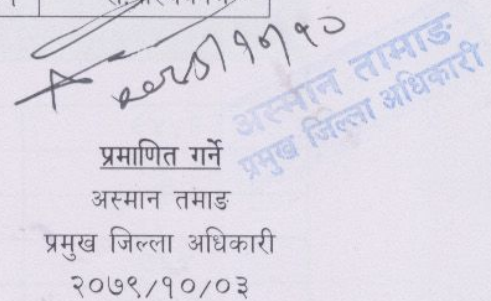 अस्मान तामाङ
प्रमुख जिल्ला अधिकारी
प्रमाणित गर्ने
अस्मान तमाङ
प्रमुख जिल्ला अधिकारी
२०७९/१०/०३